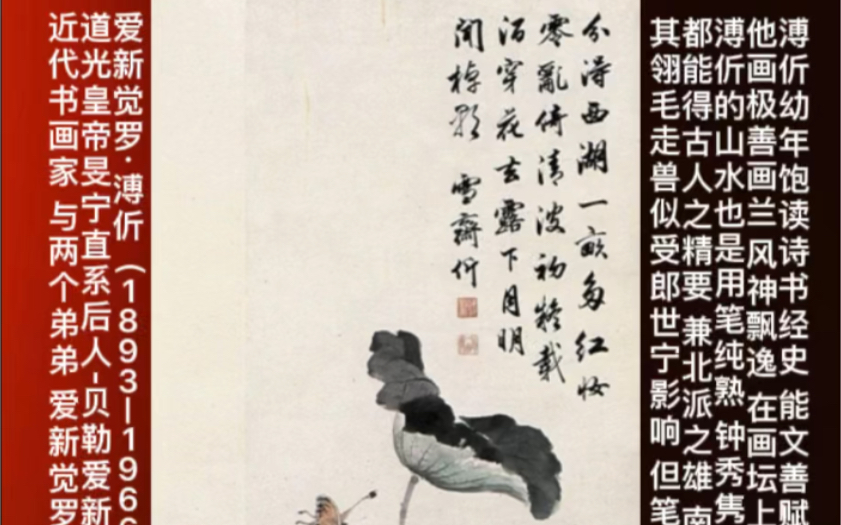 溥伒幼年饱读诗书经史 能文善赋
他画极善画兰 风神飘逸 在画坛上
溥伒的山水也是用笔纯熟 钟秀隽
都能得古人之精要 兼北派之雄 南
其翎毛走兽似受郎世宁影响 但笔
分得西湖一畝多紅妝
零亂倚清波初疑載
酒穿花去露下月明
聞棹歌 雪齋伒
爱新觉罗·溥伒（1893—196
道光皇帝旻宁直系后人-贝勒爱新
近代书画家 与两个弟弟 爱新觉罗